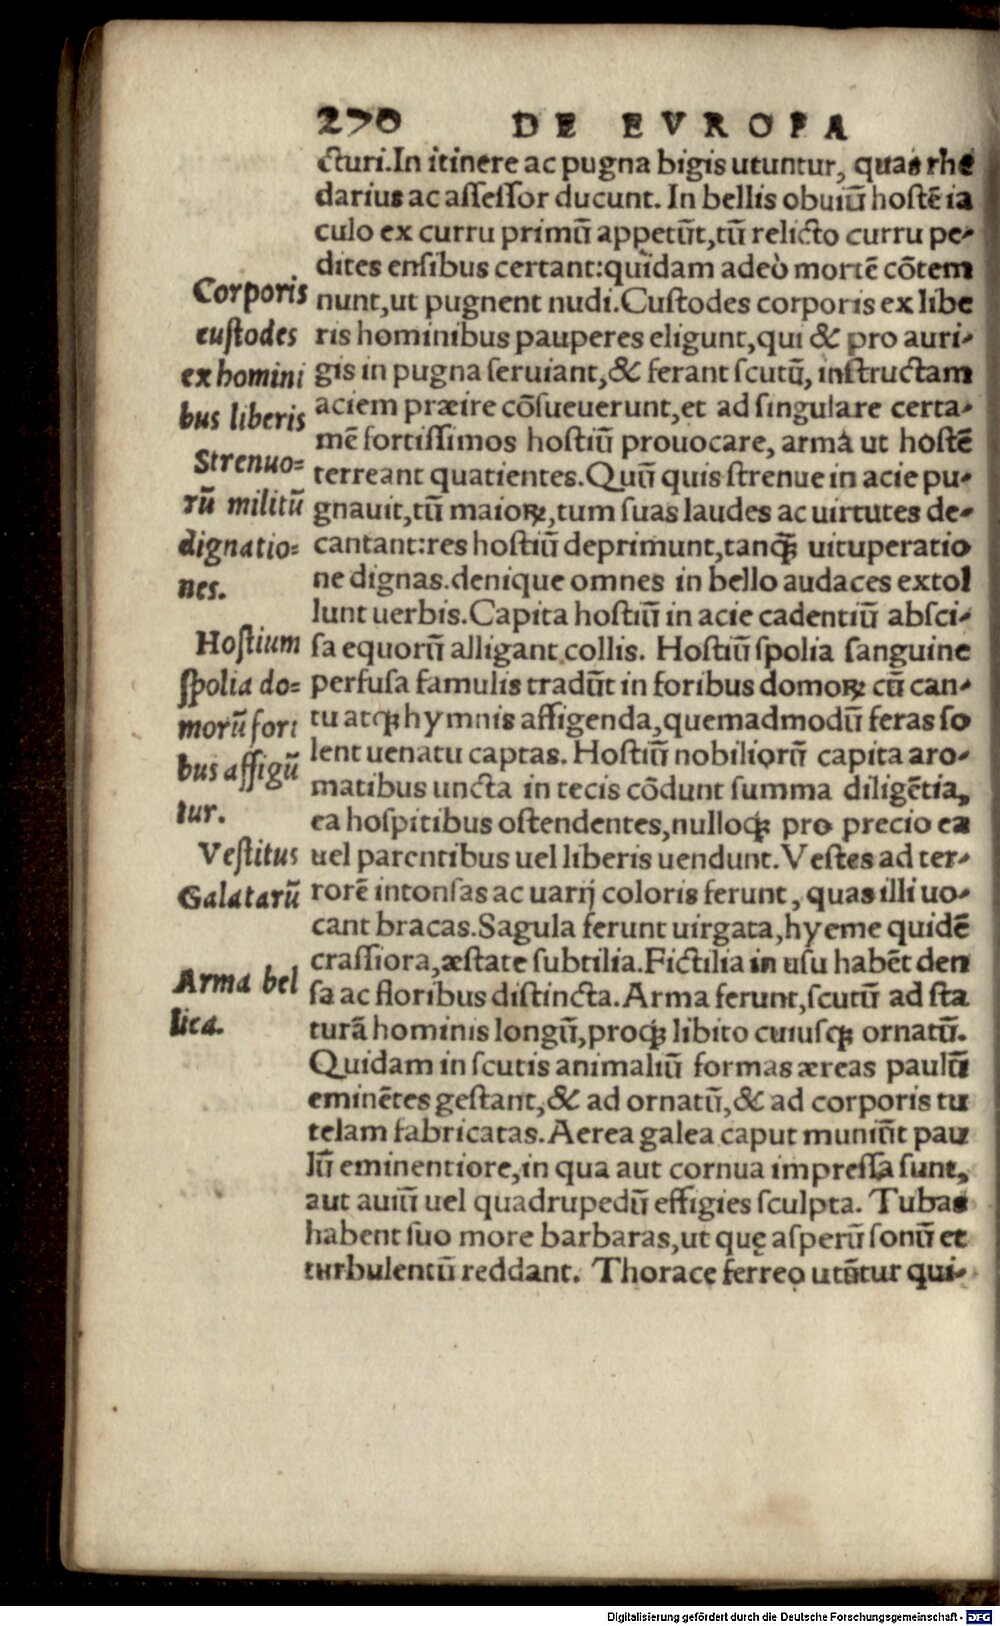 270 DE EVROPA
cturi.In itinere ac pugna bigis utuntur, quas rhe
darius ac assessor ducunt. In bellis obuiū hostē ia
culo ex curru primū appetūt,tū relicto curru pe-
dites ensibus certant:quidam adeò mortē cōtem
nunt,ut pugnent nudi.Custodes corporis ex libe
ris hominibus pauperes eligunt,qui & pro auri-
gis in pugna seruiant,& ferant scutū, instructam
aciem præire cōsueuerunt,et ad singulare certa-
mē fortissimos hostiū prouocare, arma ut hostē
terreant quatientes.Quū quis strenue in acie pu-
gnauit,tū maioꝝ,tum suas laudes ac uirtutes de-
cantant:res hostiū deprimunt,tanꝙ̄ uituperatio
ne dignas.denique omnes in bello audaces extol
lunt uerbis.Capita hostiū in acie cadentiū absci-
sa equorū alligant collis. Hostiū spolia sanguine
perfusa famulis tradūt in foribus domoꝝ cū can-
tu atꝙ hymnis affigenda,quemadmodū feras so
lent uenatu captas. Hostiū nobiliorū capita aro-
matibus uncta in tecis cōdunt summa diligētia,
ea hospitibus ostendentes,nulloꝙ pro precio ea
uel parentibus uel liberis uendunt.Vestes ad ter-
rorē intonsas ac uarij coloris ferunt, quas illi uo-
cant bracas.Sagula ferunt uirgata,hyeme quidē
crassiora,æstate subtilia.Fictilia in usu habēt den
sa ac floribus distincta.Arma ferunt,scutū ad sta
turā hominis longū,proꝙ libito cuiusꝙ ornatū.
Quidam in scutis animaliū formas æreas paulū
eminētes gestant,& ad ornatū,& ad corporis tu
telam fabricatas.Aerea galea caput muniūt pau
lū eminentiore,in qua aut cornua impressa sunt,
aut auiū uel quadrupedū effigies sculpta. Tubas
habent suo more barbaras,ut quę asperū sonū et
turbulentū reddant. Thorace ferreo utūtur qui-
Corporis
custodes
ex homini
bus liberis
Strenuo=
rū militū
dignatio=
nes.
Hostium
spolia do=
morū fori
bus affigū
tur.
Vestitus
Galatarū
Arma bel
lica.
Digitalisierung gefördert durch die Deutsche Forschungsgemeinschaft - DFG